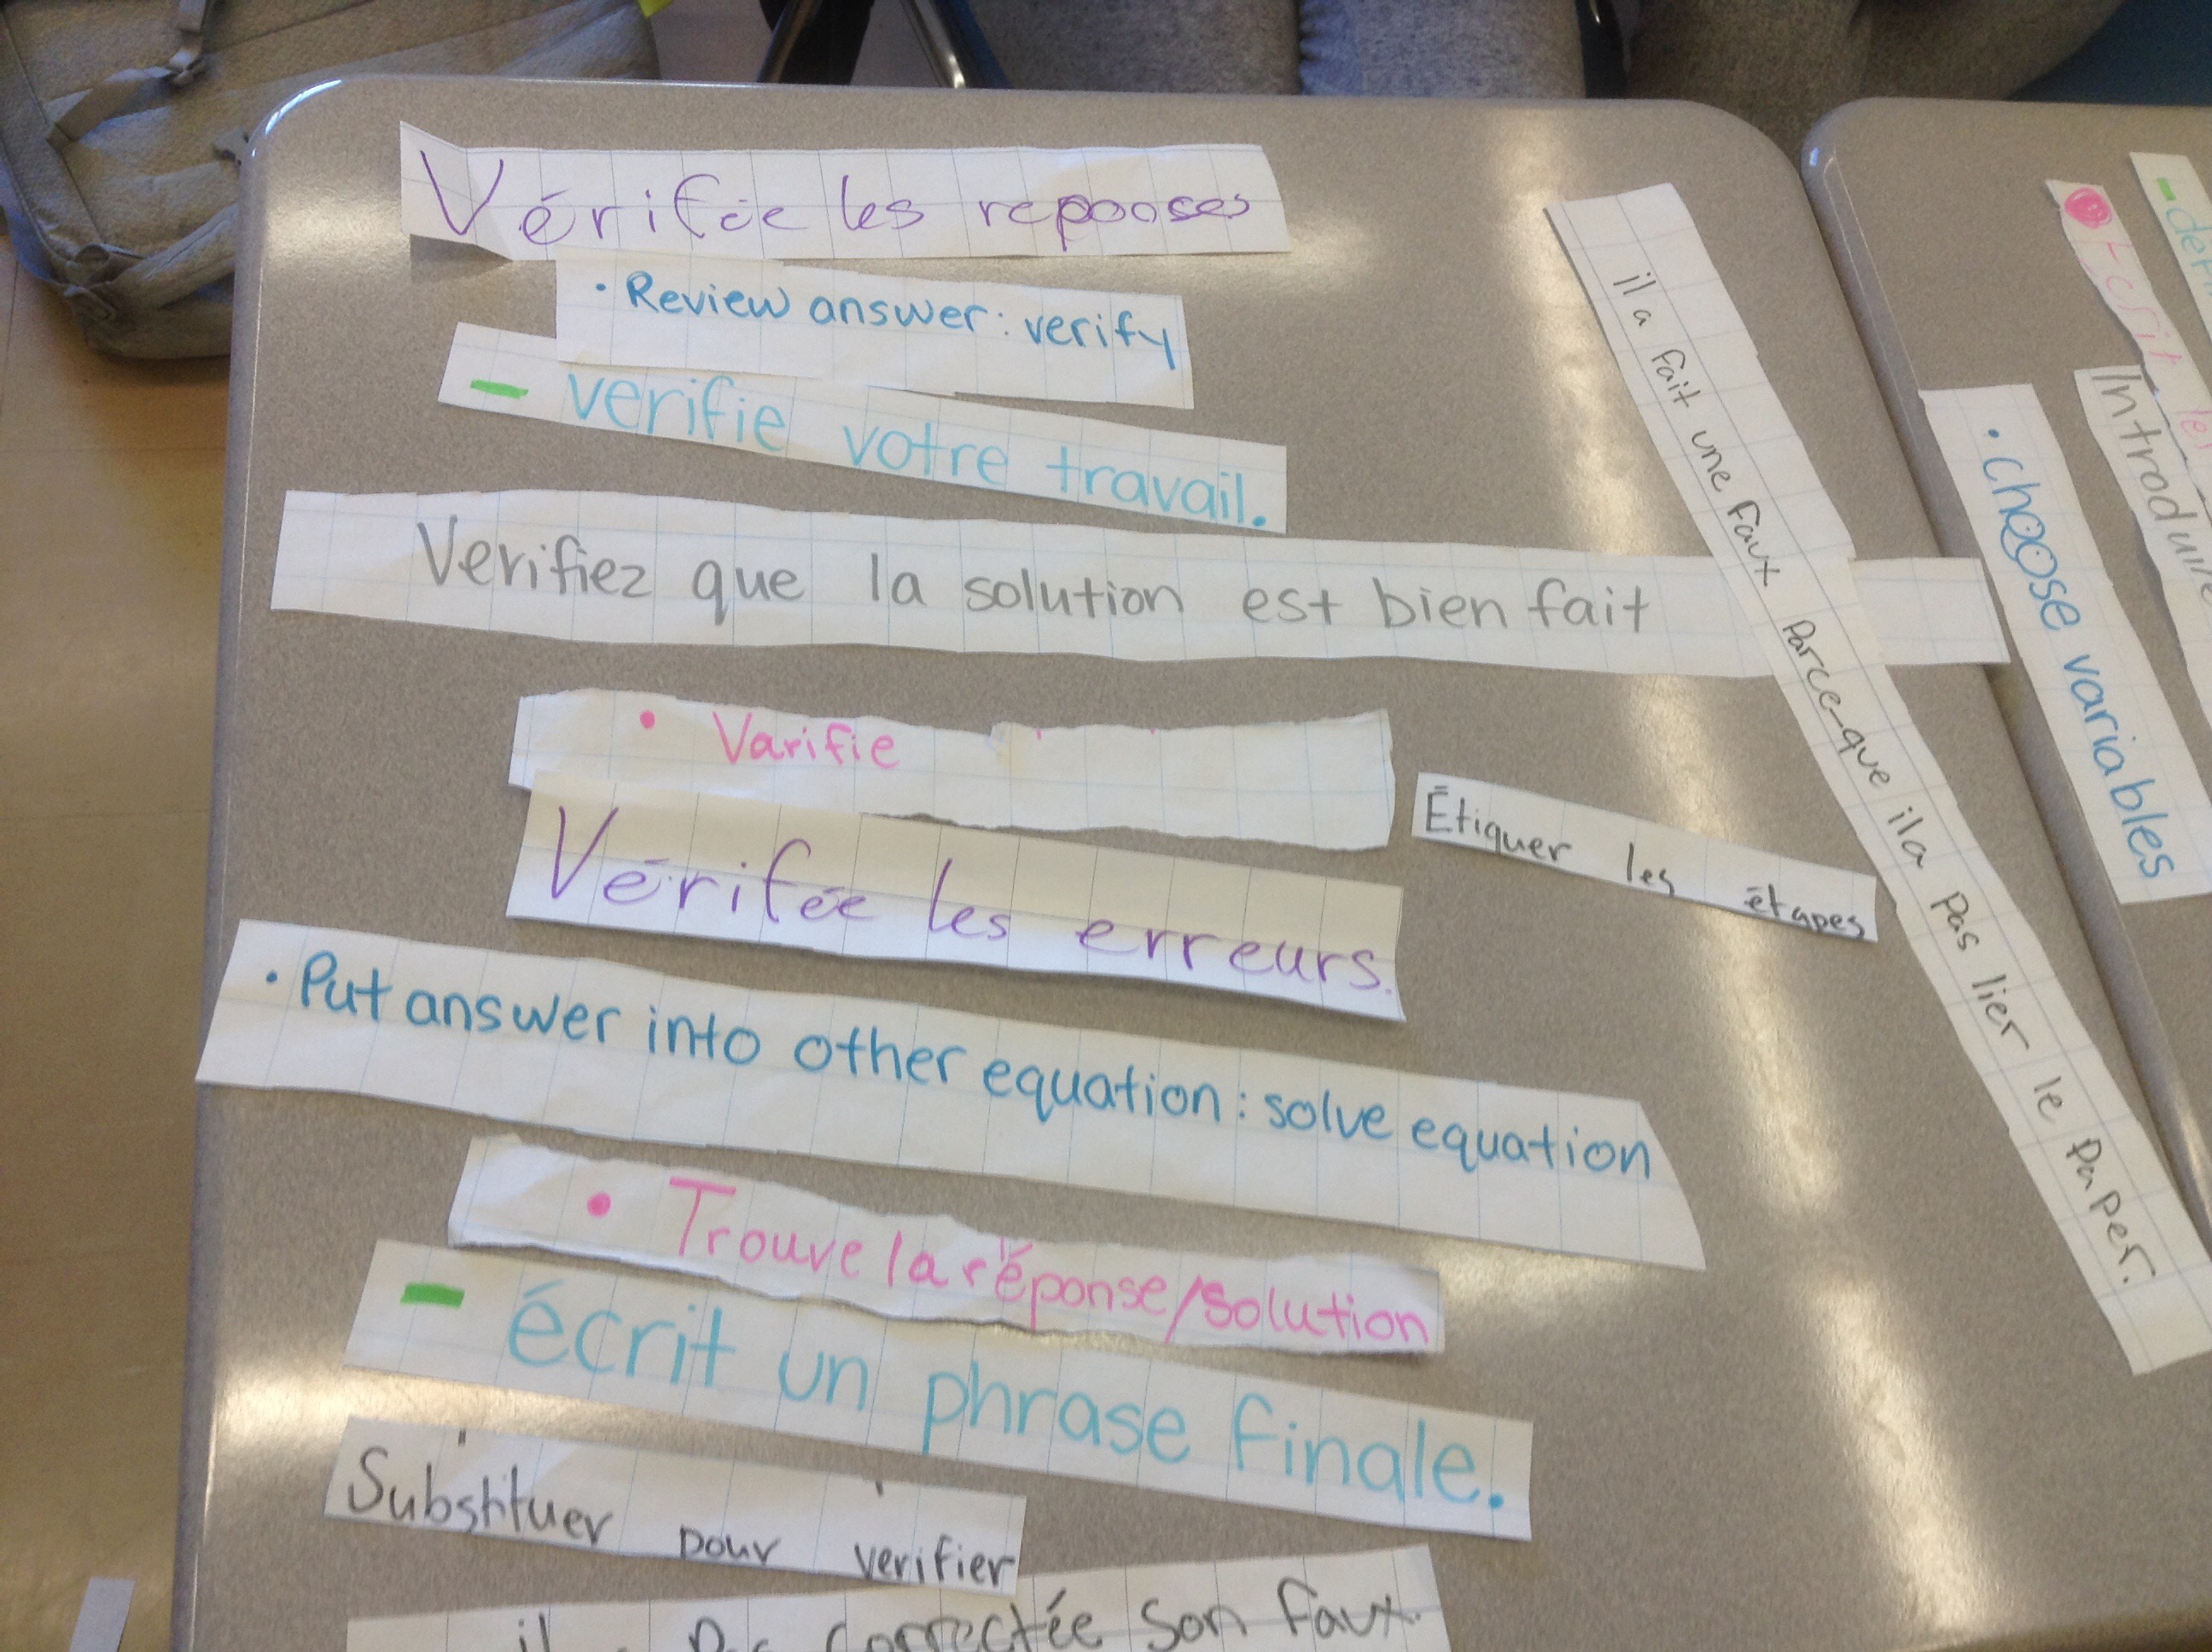 Vérifée les repooses
• Review answer: verify
- verifie votre travail.
Verifiez que la solution est bien fait
• Varifie
Vérifée les erreurs.
Étiquer les étapes
• Put answer into other equation: solve equation
• Trouve la réponse/solution
- écrit un phrase finale.
Substituer pour verifier
il Pas correctée son faux.
il a fait une faux parce-que il a pas lier le paper.
• choose variables
Introduire